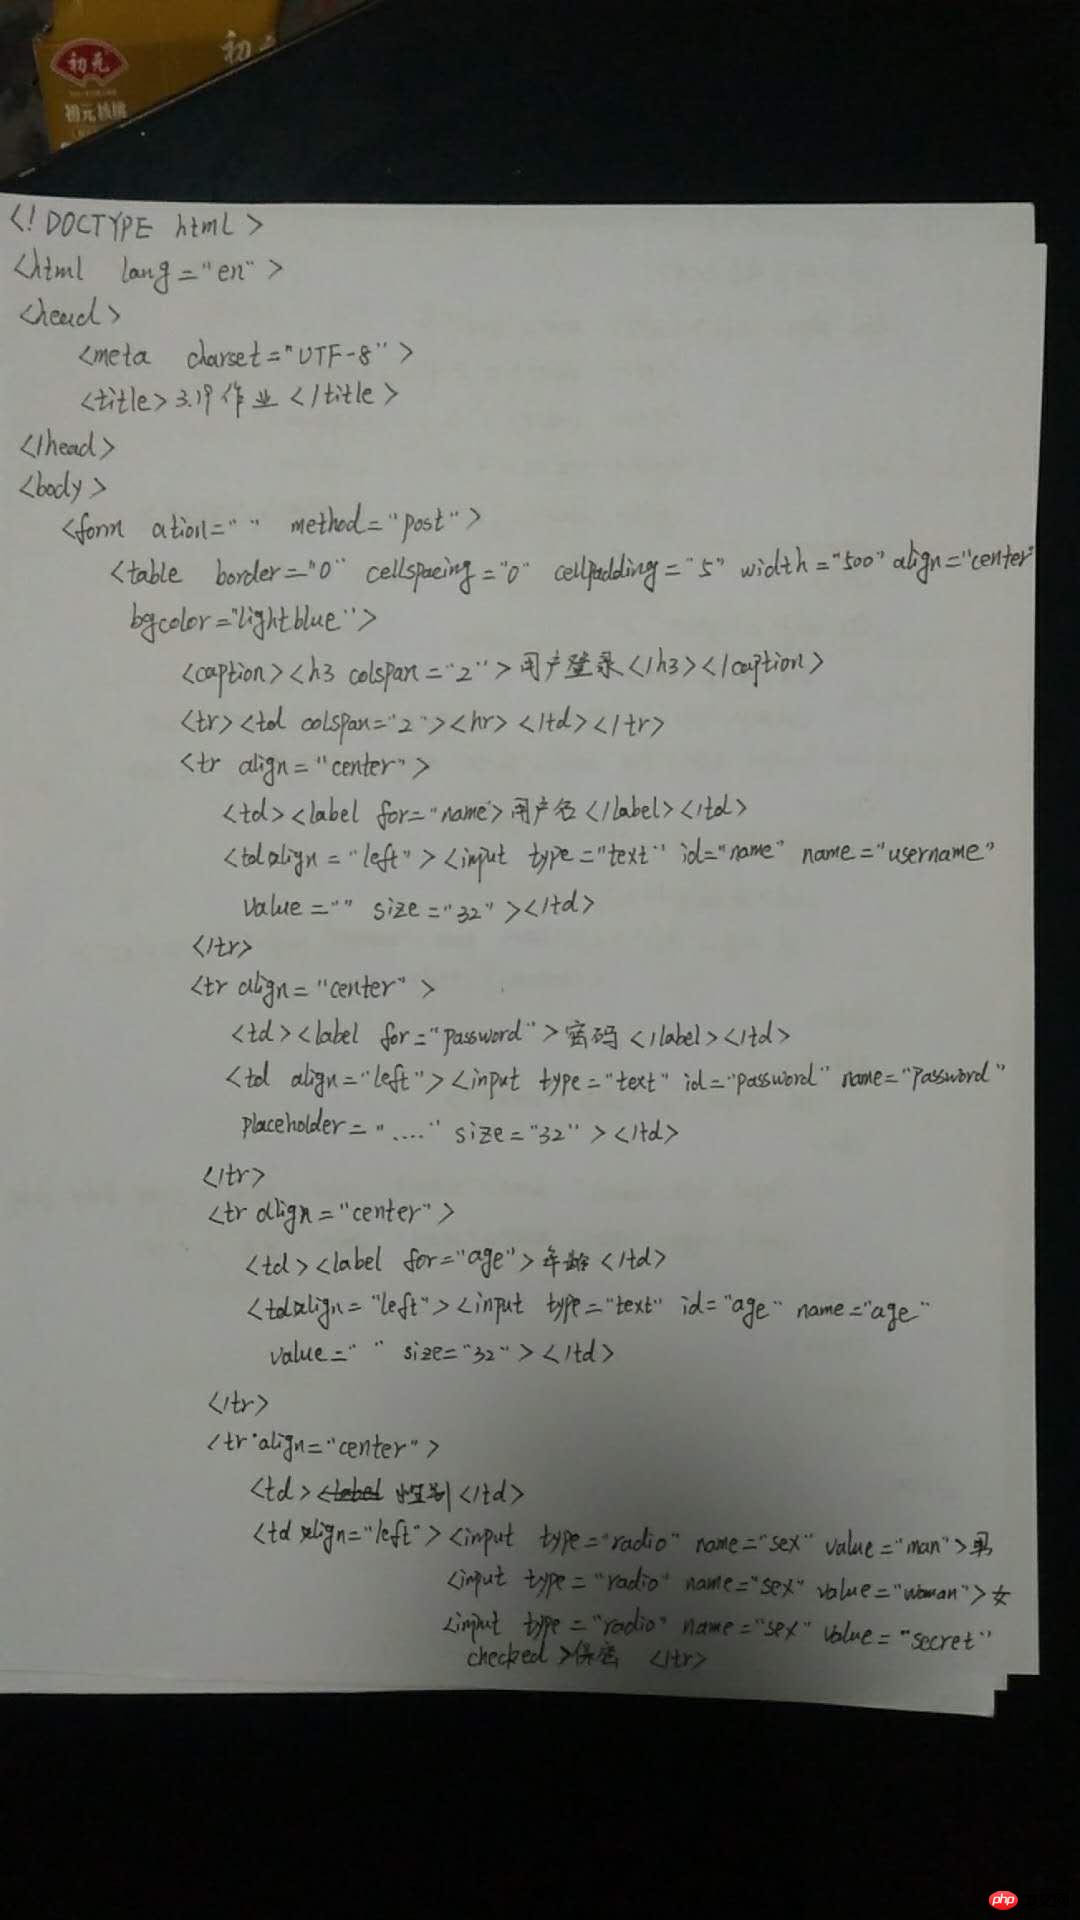 初元
初元
初元核桃
<!DOCTYPE html>
<html lang="en">
<head>
<meta charset="UTF-8">
<title>3.19作业</title>
</head>
<body>
<form ation=" " method="post">
<table border="0" cellspacing="0" cellpadding="5" width="500" align="center"
bgcolor="lightblue">
<caption><h3 colspan="2">用户登录</h3></caption>
<tr><td colspan="2"><hr></td></tr>
<tr align="center">
<td><label for="name>用户名</label></td>
<td align="left"><input type="text" id="name" name="username"
value="" size="32"></td>
</tr>
<tr align="center">
<td><label for="password">密码</label></td>
<td align="left"><input type="text" id="password" name="password"
placeholder="....." size="32"></td>
</tr>
<tr align="center">
<td><label for="age">年龄</td>
<td align="left"><input type="text" id="age" name="age"
value=" " size="32"></td>
</tr>
<tr align="center">
<td>性别</td>
<td align="left"><input type="radio" name="sex" value="man">男
<input type="radio" name="sex" value="woman">女
<input type="radio" name="sex" value="secret"
checked>保密 </tr>
php